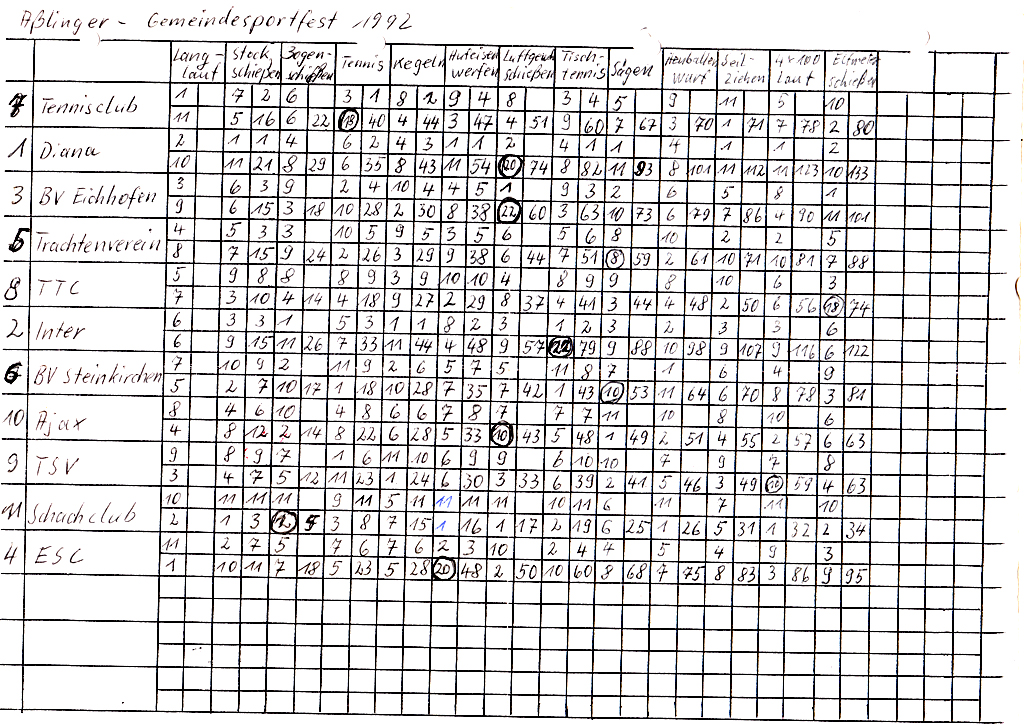 Aßlinger - Gemeindesportfest 1992
Lang- Stock Bogen- Tennis Kegeln Hufeisen Luftgew. Tisch- Sägen Heuballen Seil- 4x100 Elfmeter
lauf schießen schießen werfen schießen tennis wurf ziehen Lauf schießen
1 7 2 6 3 1 8 2 9 4 8 3 4 5 9 11 5 10
7 Tennisclub
11 5 16 6 22 18 40 4 44 3 47 4 51 9 60 7 67 3 70 1 71 7 78 2 80
2 1 1 4 6 2 4 3 1 1 2 4 1 1 4 1 1 2
1 Diana
10 11 21 8 29 6 35 8 43 11 54 20 74 8 82 11 93 8 101 11 112 11 123 10 133
3 6 3 9 2 4 10 4 4 5 1 9 3 2 6 5 8 1
3 BV Eichhofen
9 6 15 3 18 10 28 2 30 8 38 22 60 3 63 10 73 6 79 7 86 4 90 11 101
4 5 3 3 10 5 9 5 3 5 6 5 6 8 10 2 2 5
5 Trachtenverein
8 7 15 9 24 2 26 3 29 9 38 6 44 7 51 8 59 2 61 10 71 10 81 7 88
5 9 8 8 8 9 3 9 10 10 4 8 9 9 8 10 6 3
8 TTC
7 3 10 4 14 4 18 9 27 2 29 8 37 4 41 3 44 4 48 2 50 6 56 18 74
6 3 3 1 5 3 1 1 8 2 3 1 2 3 2 3 3 6
2 Inter
6 9 15 11 26 7 33 11 44 4 48 9 57 22 79 9 88 10 98 9 107 9 116 6 122
7 10 9 2 11 9 2 6 5 7 5 11 8 7 1 6 4 9
6 BV Steinkirchen
5 2 7 10 17 1 18 10 28 7 35 7 42 1 43 10 53 11 64 6 70 8 78 3 81
8 4 6 10 4 8 6 6 7 8 7 7 7 11 10 8 10 6
10 Ajax
4 8 12 2 14 8 22 6 28 5 33 10 43 5 48 1 49 2 51 4 55 2 57 6 63
9 8 9 7 1 6 11 10 6 9 9 6 10 10 7 9 7 8
9 TSV
3 4 7 5 12 11 23 1 24 6 30 3 33 6 39 2 41 5 46 3 49 10 59 4 63
10 11 11 11 9 11 5 11 11 11 11 10 11 6 11 7 11 10
11 Schachclub
2 1 3 2 5 3 8 7 15 1 16 1 17 2 19 6 25 1 26 5 31 1 32 2 34
11 2 7 5 7 6 7 6 2 3 10 2 4 4 5 4 9 3
4 ESC
1 10 11 7 18 5 23 5 28 20 48 2 50 10 60 8 68 7 75 8 83 3 86 9 95